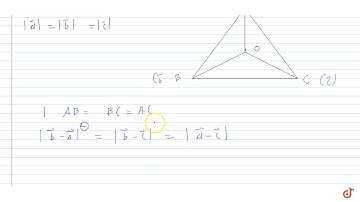 |a⃗| = |b⃗| = |c⃗|
O
(b⃗ B
C (c⃗)
| AB = BC = AC
|b⃗-a⃗| = |b⃗-c⃗| = |a⃗-c⃗|